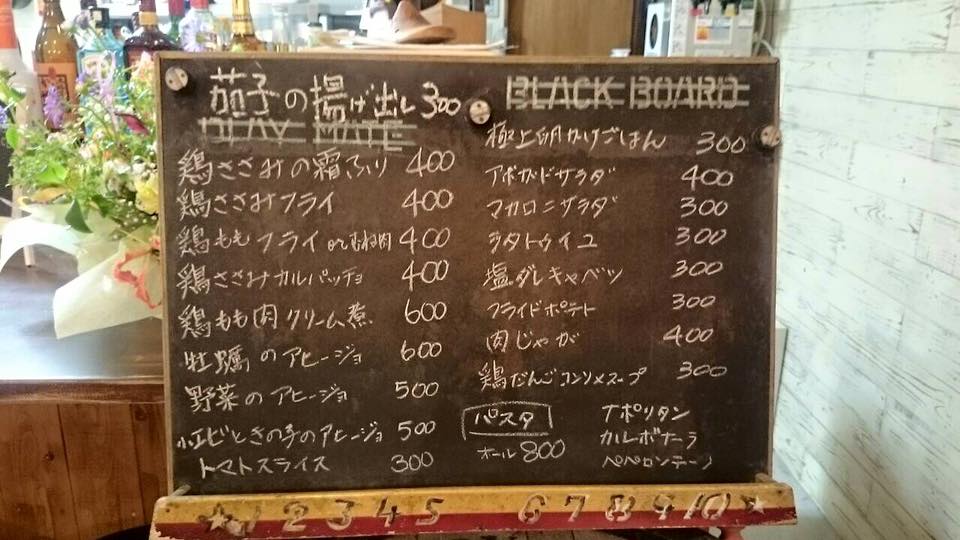 茄子の揚げ出し 300
PLAY MATE
鶏ささみの霜ふり 400
鶏ささみフライ 400
鶏ももフライ orむね肉 400
鶏ささみカルパッチョ 400
鶏もも肉クリーム煮 600
牡蠣のアヒージョ 600
野菜のアヒージョ 500
小エビときの子のアヒージョ 500
トマトスライス 300
BLACK BOARD
極上卵かけごはん 300
アボカドサラダ 400
マカロニサラダ 300
ラタトゥイユ 300
塩ダレキャベツ 300
フライドポテト 300
肉じゃが 400
鶏だんごコンソメスープ 300
パスタ
オール 800
ナポリタン
カルボナーラ
ペペロンチーノ
1 2 3 4 5 6 7 8 9 10